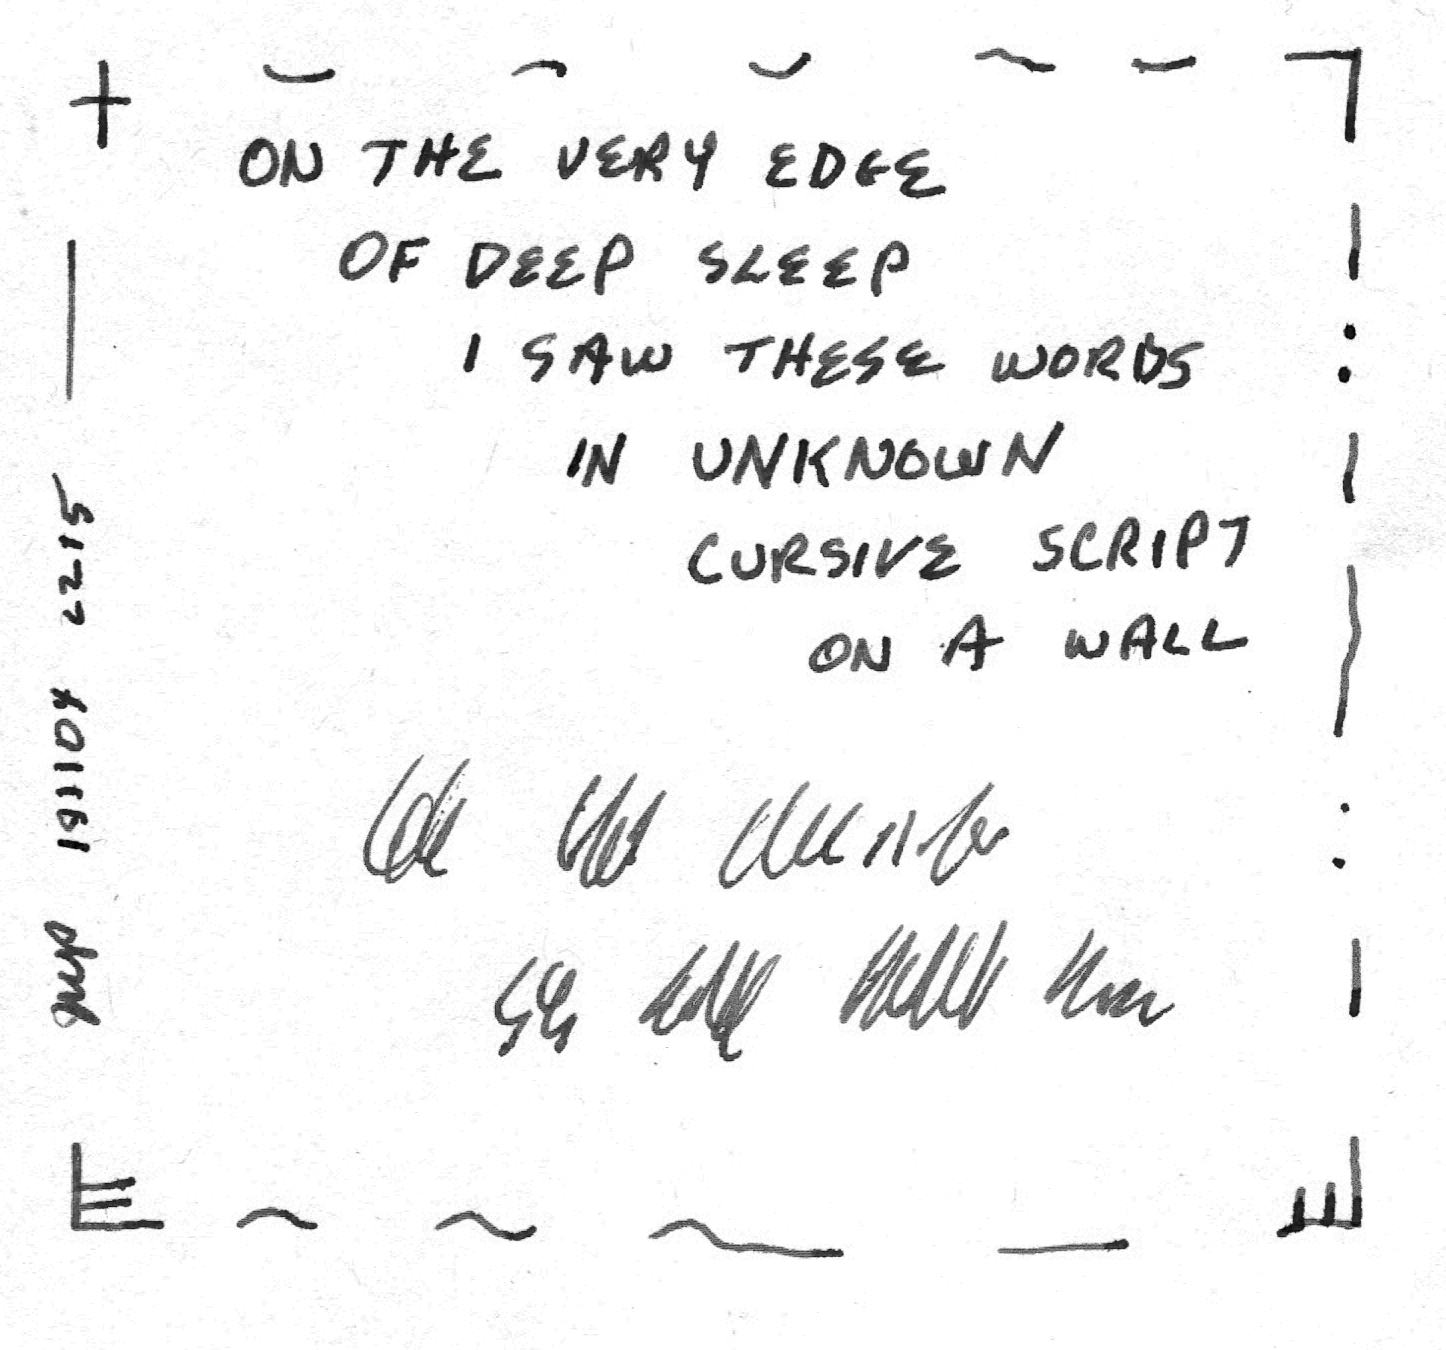 ON THE VERY EDGE
OF DEEP SLEEP
I SAW THESE WORDS
IN UNKNOWN
CURSIVE SCRIPT
ON A WALL
191104 2215